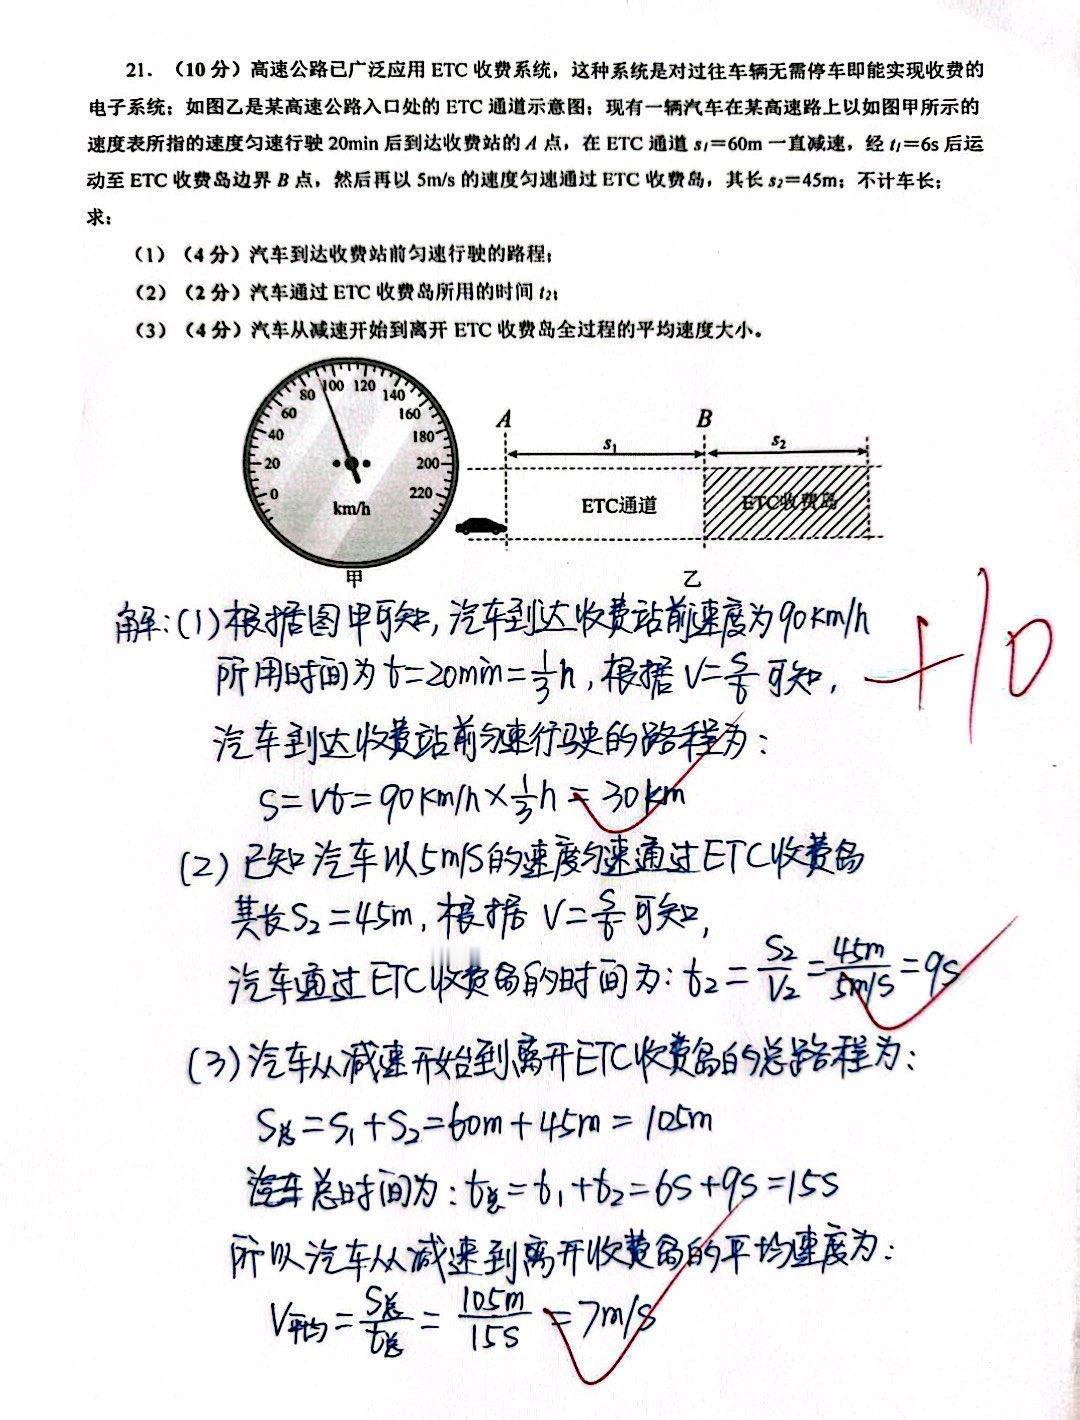 21. （10 分）高速公路已广泛应用 ETC 收费系统，这种系统是对过往车辆无需停车即能实现收费的
电子系统；如图乙是某高速公路入口处的 ETC 通道示意图；现有一辆汽车在某高速路上以如图甲所示的
速度表所指的速度匀速行驶 20min 后到达收费站的 A 点，在 ETC 通道 s₁＝60m 一直减速，经 t₁＝6s 后运
动至 ETC 收费岛边界 B 点，然后再以 5m/s 的速度匀速通过 ETC 收费岛，其长 s₂＝45m；不计车长；
求：
（1）（4 分）汽车到达收费站前匀速行驶的路程；
（2）（2 分）汽车通过 ETC 收费岛所用的时间 t₂；
（3）（4 分）汽车从减速开始到离开 ETC 收费岛全过程的平均速度大小。
0 20 40 60 80 100 120 140 160 180 200 220
km/h
甲
A B
s₁ s₂
ETC通道 ETC收费岛
乙
解：(1)根据图甲可知，汽车到达收费站前速度为90km/h
所用时间为t=20min=1/3h，根据V=S/t可知，
汽车到达收费站前匀速行驶的路程为：
S=Vt=90km/h×1/3h=30km
+10
(2)已知汽车以5m/s的速度匀速通过ETC收费岛
其长S₂=45m，根据V=S/t可知，
汽车通过ETC收费岛的时间为：t₂=S₂/V₂=45m/5m/s=9s
(3)汽车从减速开始到离开ETC收费岛的总路程为：
S总=S₁+S₂=60m+45m=105m
汽车总时间为：t总=t₁+t₂=6s+9s=15s
所以汽车从减速到离开收费岛的平均速度为：
V平均=S总/t总=105m/15s=7m/s